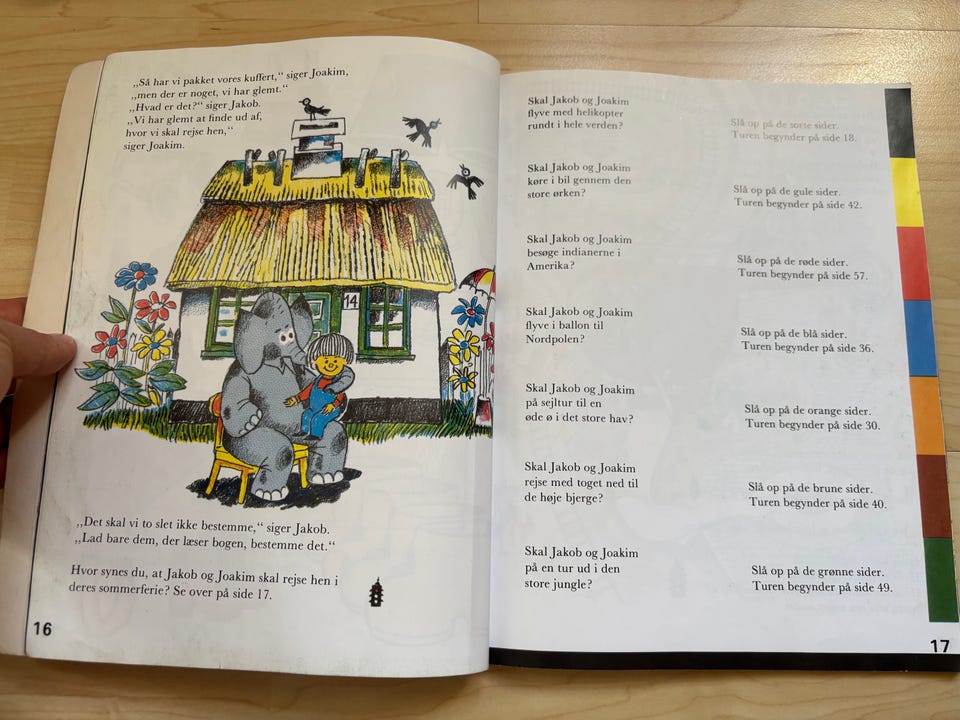 „Så har vi pakket vores kuffert,“ siger Joakim,
„men der er noget, vi har glemt.“
„Hvad er det?“ siger Jakob.
„Vi har glemt at finde ud af,
hvor vi skal rejse hen,“
siger Joakim.
14
„Det skal vi to slet ikke bestemme,“ siger Jakob.
„Lad bare dem, der læser bogen, bestemme det.“
Hvor synes du, at Jakob og Joakim skal rejse hen i
deres sommerferie? Se over på side 17.
16
Skal Jakob og Joakim
flyve med helikopter
rundt i hele verden?
Slå op på de sorte sider.
Turen begynder på side 18.
Skal Jakob og Joakim
køre i bil gennem den
store ørken?
Slå op på de gule sider.
Turen begynder på side 42.
Skal Jakob og Joakim
besøge indianerne i
Amerika?
Slå op på de røde sider.
Turen begynder på side 57.
Skal Jakob og Joakim
flyve i ballon til
Nordpolen?
Slå op på de blå sider.
Turen begynder på side 36.
Skal Jakob og Joakim
på sejltur til en
øde ø i det store hav?
Slå op på de orange sider.
Turen begynder på side 30.
Skal Jakob og Joakim
rejse med toget ned til
de høje bjerge?
Slå op på de brune sider.
Turen begynder på side 40.
Skal Jakob og Joakim
på en tur ud i den
store jungle?
Slå op på de grønne sider.
Turen begynder på side 49.
17